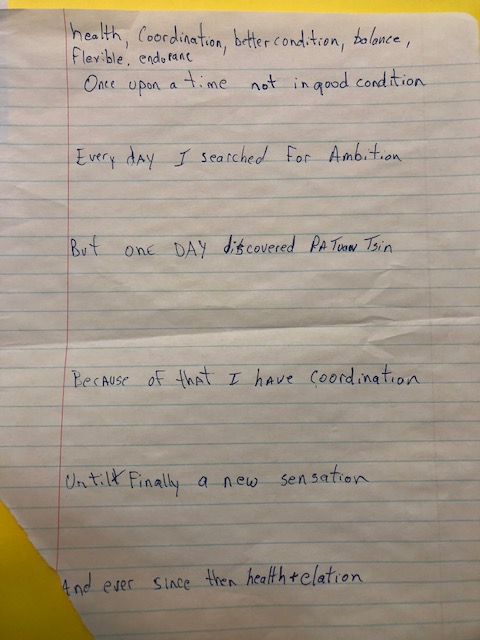 health, Coordination, better condition, balance,
Flexible, enduranc
Once upon a time not in good condition
Every day I searched For Ambition
But one DAY discovered PA Tuan Tsin
Because of that I have Coordination
Until Finally a new sensation
And ever since then health + elation